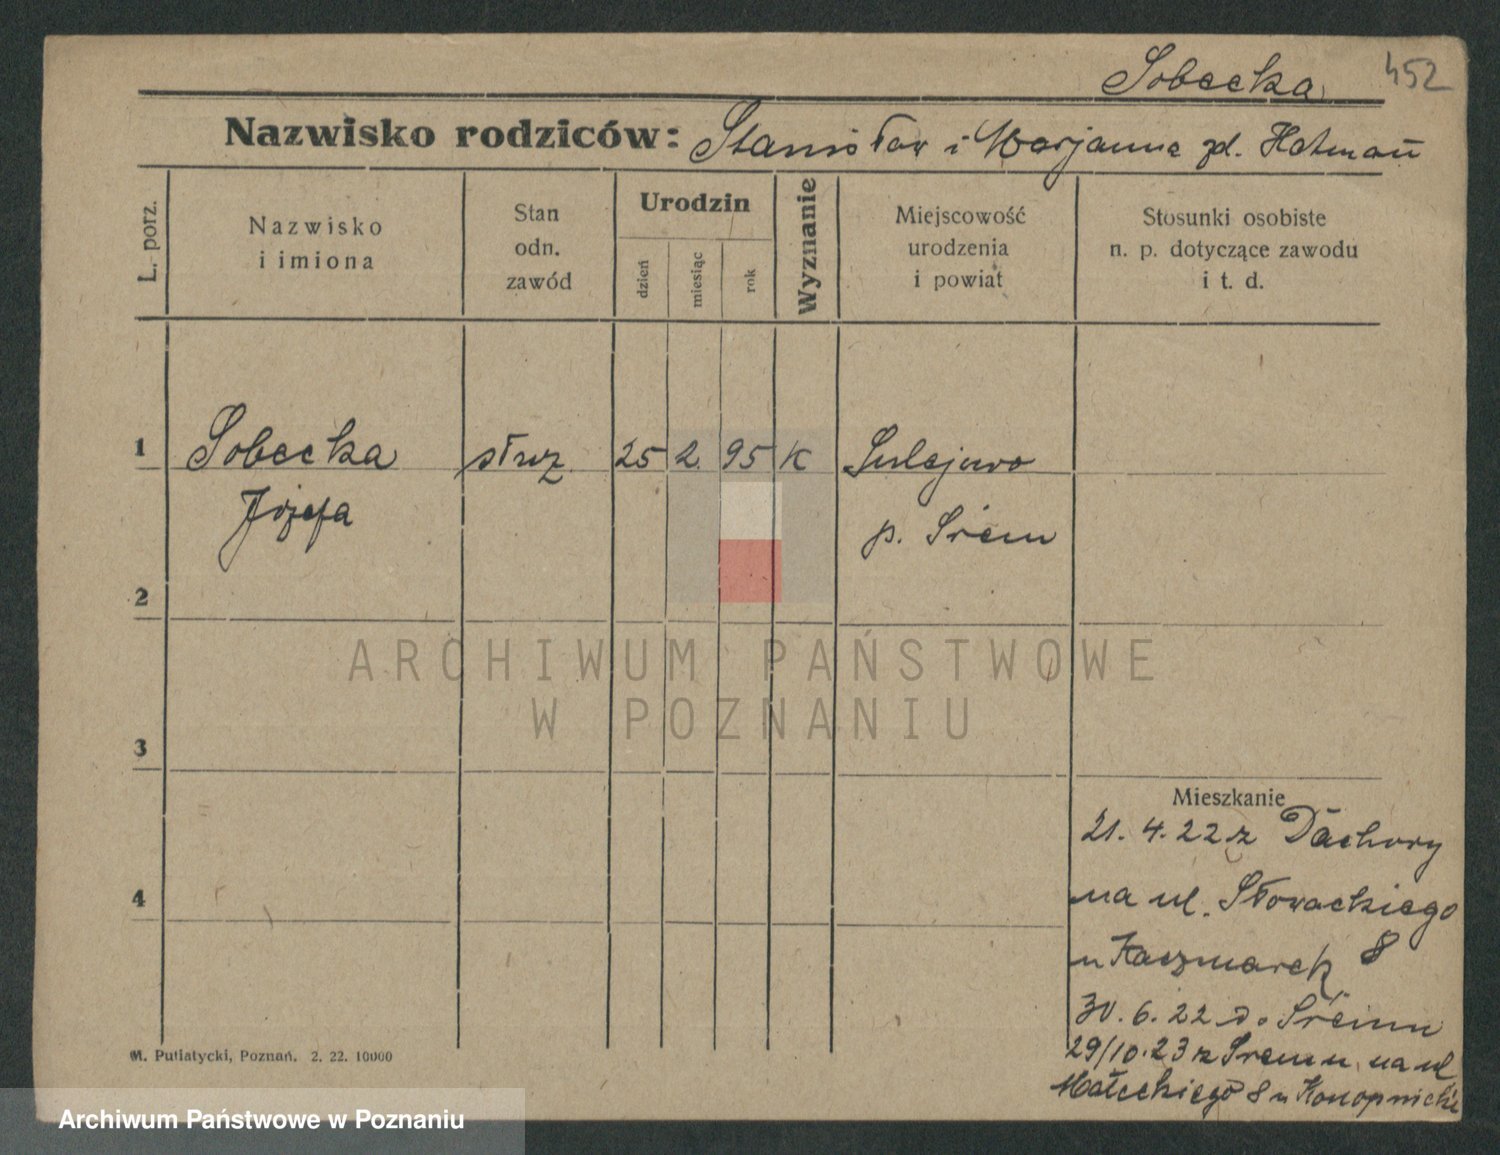 Sobecka 452
Nazwisko rodziców: Stanisław i Marjanna zd. Hatmań
L. porz.
Nazwisko
i imiona
Stan
odn.
zawód
Urodzin
dzień
miesiąc
rok
Wyznanie
Miejscowość
urodzenia
i powiat
Stosunki osobiste
n. p. dotyczące zawodu
i t. d.
1 Sobecka służ 25 2. 95 K Sulejewo
Józefa p. Śrem
2
3
4
ARCHIWUM PAŃSTWOWE
W POZNANIU
Mieszkanie
21. 4. 22 z Dachory
na ul. Słowackiego
u Kaczmarek 8
30. 6. 22 do Śremu
29/10. 23 z Śremu na ul
Małeckiego 8 u Konopnicki
M. Putiatycki, Poznań. 2. 22. 10000
Archiwum Państwowe w Poznaniu